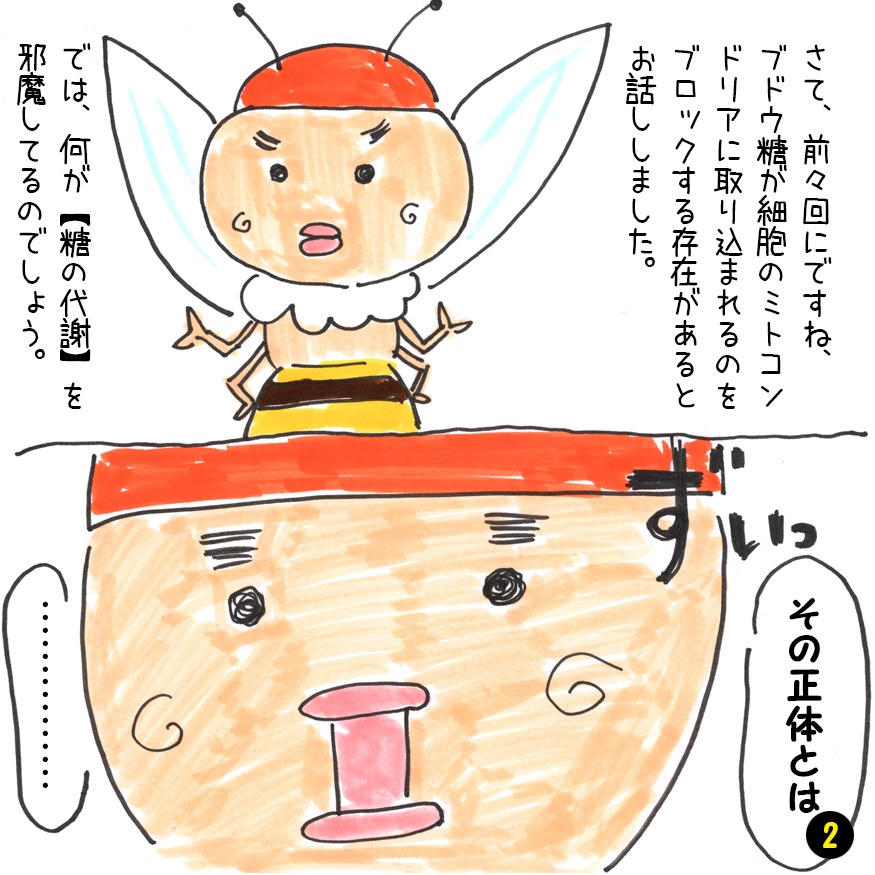 さて、前々回にですね、
ブドウ糖が細胞のミトコン
ドリアに取り込まれるのを
ブロックする存在があると
お話ししました。
では、何が【糖の代謝】を
邪魔してるのでしょう。
ずいっ
その正体とは
……………
2